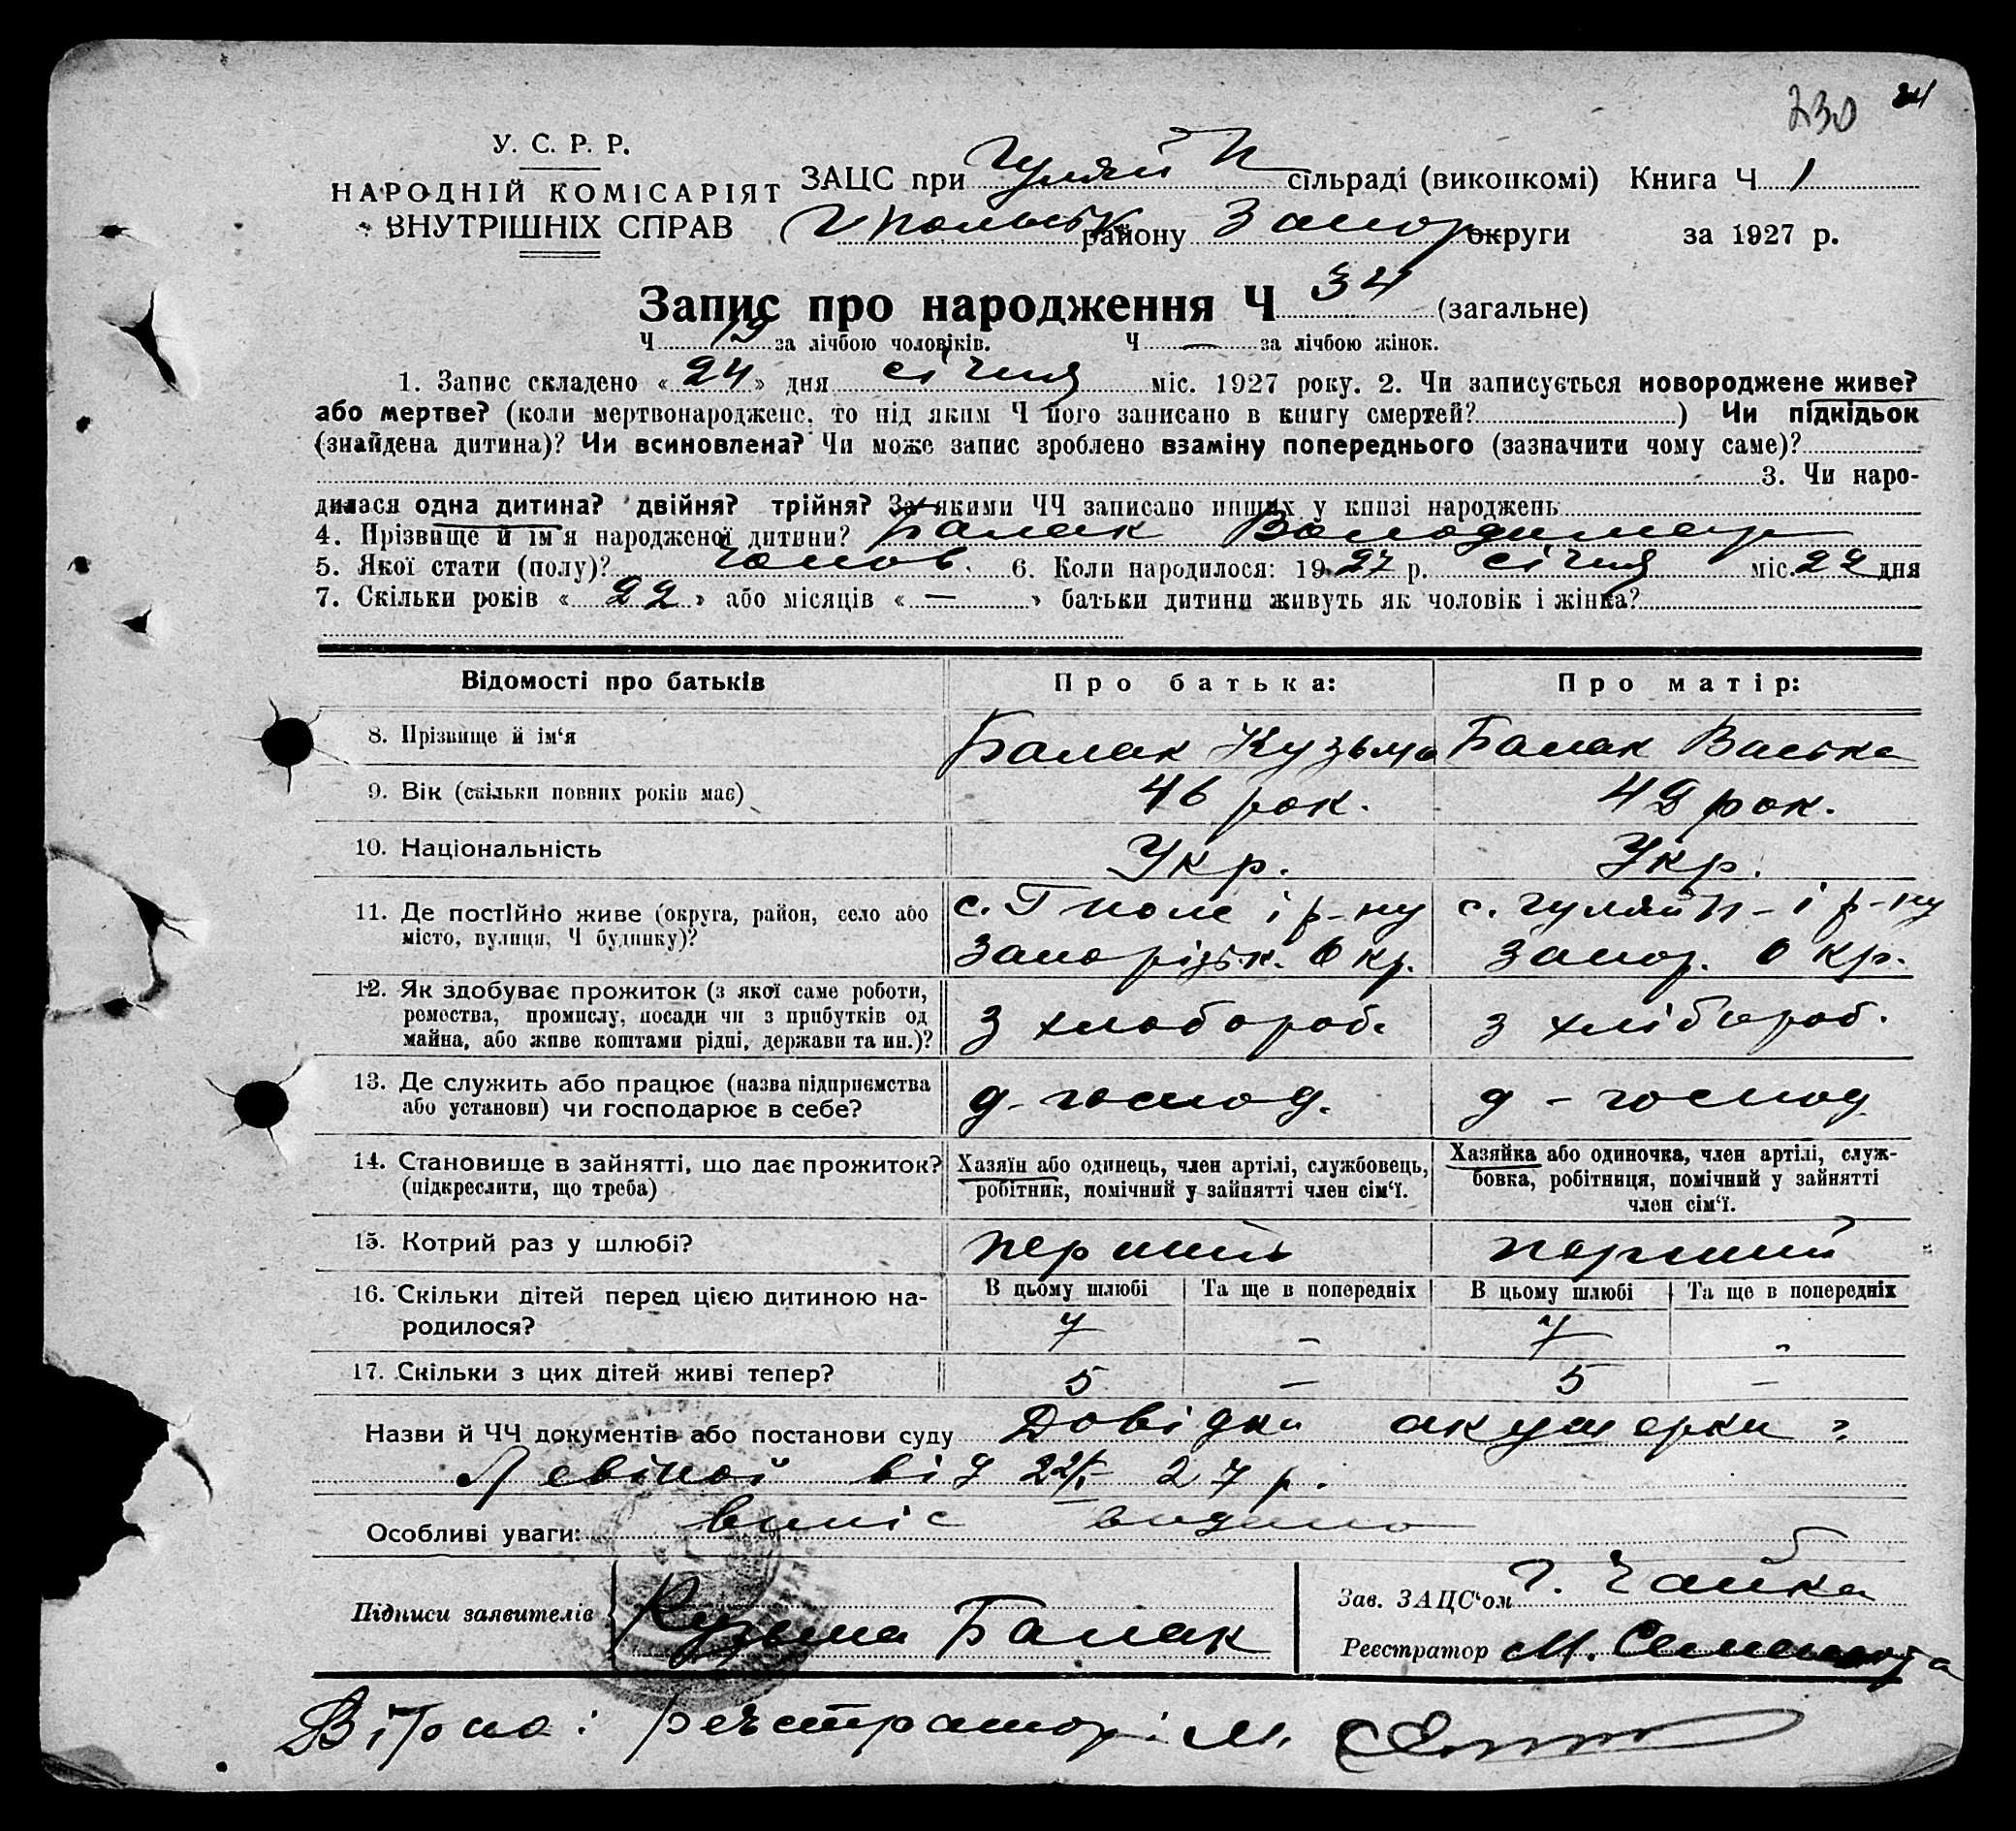 230 34
У. С. Р. Р.
НАРОДНІЙ КОМІСАРІЯТ
ВНУТРІШНІХ СПРАВ
ЗАЦС при Гуляй П сільраді (виконкомі) Книга Ч 1
Г Польськ району Запор округи за 1927 р.
Запис про народження Ч 34 (загальне)
Ч 19 за лічбою чоловіків. Ч — за лічбою жінок.
1. Запис складено «24» дня січня міс. 1927 року. 2. Чи записується новороджене живе?
або мертве? (коли мертвонароджене, то під яким Ч його записано в книгу смертей? ) Чи підкідьок
(знайдена дитина)? Чи всиновлена? Чи може запис зроблено взаміну попереднього (зазначити чому саме)?
3. Чи наро-
дилася одна дитина? двійня? трійня? За якими ЧЧ записано инших у книзі народжень
4. Прізвище й ім'я народженої дитини? Балак Володимер
5. Якої стати (полу)? чолов. 6. Коли народилося: 1927 р. січня міс. 22 дня
7. Скільки років «22» або місяців «—» батьки дитини живуть як чоловік і жінка?
Відомості про батьків Про батька: Про матір:
8. Прізвище й ім'я Балак Кузьма Балак Васька
9. Вік (скільки повних років має) 46 рок. 42 рок.
10. Національність Укр. Укр.
11. Де постійно живе (округа, район, село або
місто, вулиця, Ч будинку)?
с. Г поле і р-ну
Запорізьк. Окр.
с. Гуляй П - і р-ну
Запор. Окр.
12. Як здобуває прожиток (з якої саме роботи,
ремества, промислу, посади чи з прибутків од
майна, або живе коштами рідні, держави та ин.)?
з хлібороб.
з хлібороб.
13. Де служить або працює (назва підприємства
або установи) чи господарює в себе?
д-господ.
д-господ
14. Становище в зайнятті, що дає прожиток?
(підкреслити, що треба)
Хазяїн або одинець, член артілі, службовець,
робітник, помічний у зайнятті член сім'ї.
Хазяйка або одиночка, член артілі, служ-
бовка, робітниця, помічний у зайнятті
член сім'ї.
15. Котрий раз у шлюбі? перший перший
16. Скільки дітей перед цією дитиною на-
родилося?
В цьому шлюбі Та ще в попередніх В цьому шлюбі Та ще в попередніх
7 — 7 —
17. Скільки з цих дітей живі тепер? 5 — 5 —
Назви й ЧЧ документів або постанови суду Довідка акушерки
Левіної від 22/I 27 р.
Особливі уваги: випіс видано
Підписи заявителів Кузьма Балак
Зав. ЗАЦС'ом Г. Чайка
Реєстратор М.
Вірно: реєстратор: М.